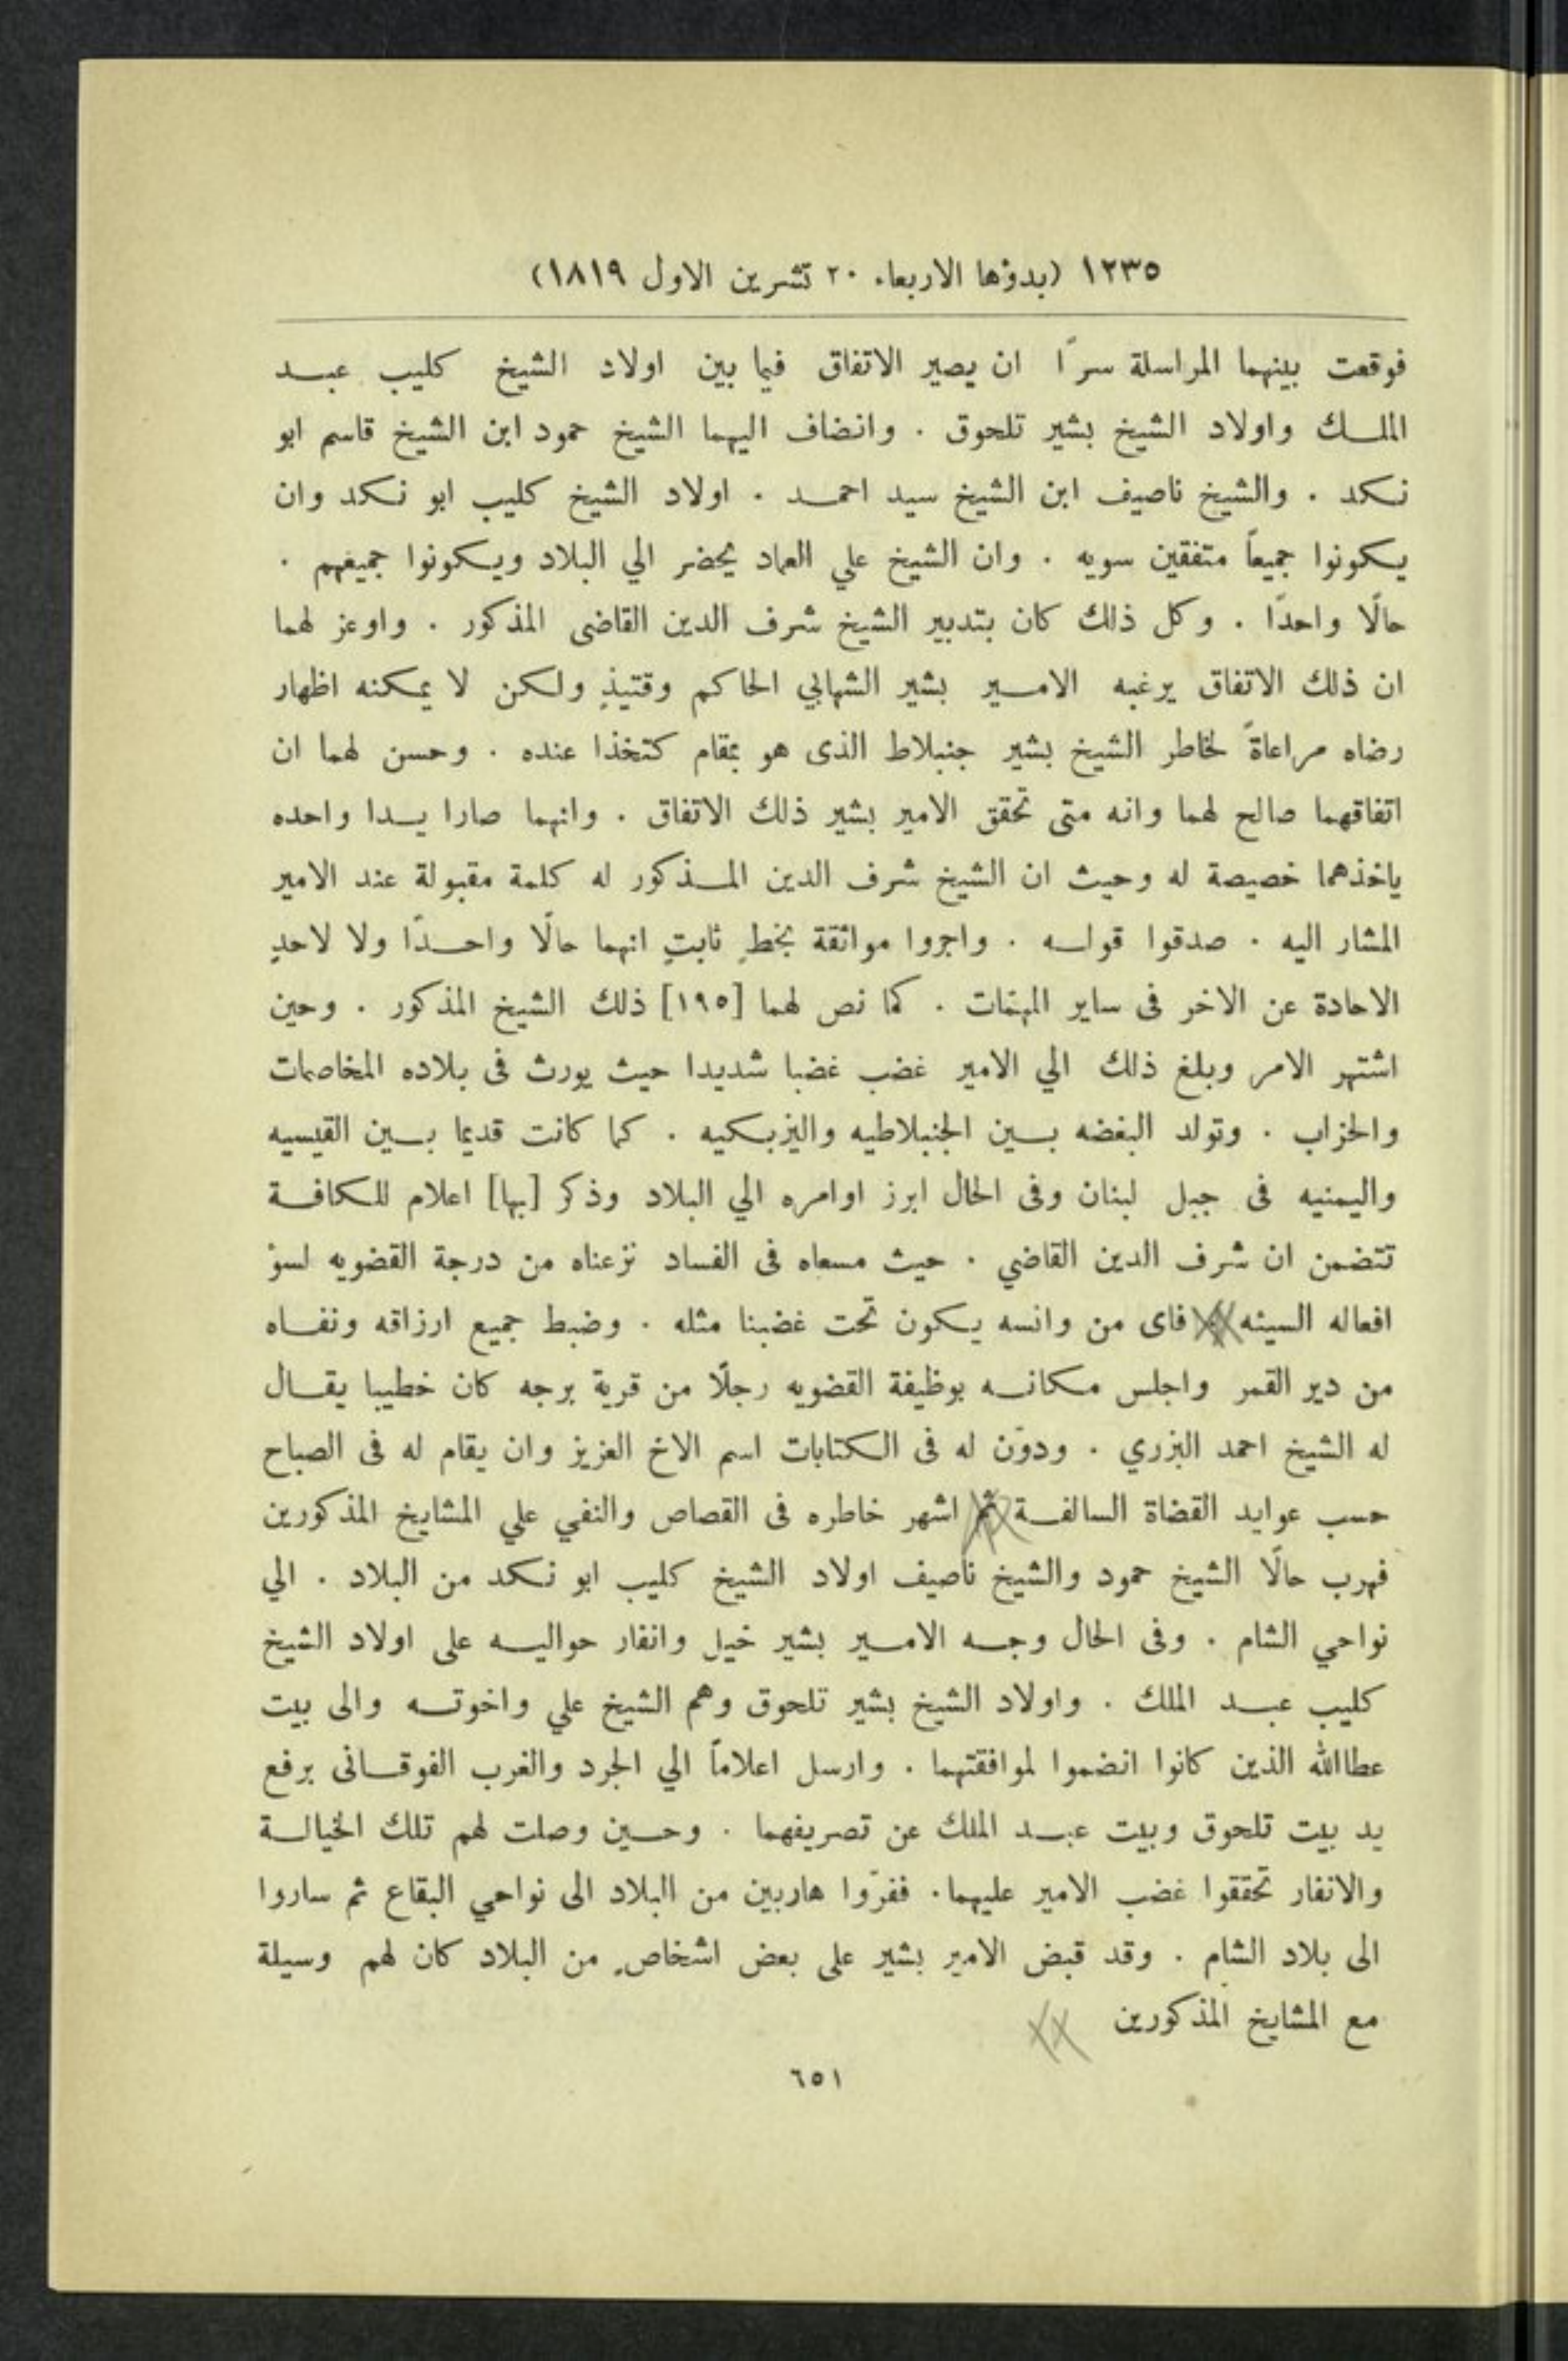 ١٢٣٥ (بدؤها الاربعاء ٢٠ تشرين الاول ١٨١٩)
فوقعت بينهما المراسلة سرًا ان يصير الاتفاق فيما بين اولاد الشيخ كليب عبد
الملك واولاد الشيخ بشير تلحوق . وانضاف اليهما الشيخ حمود ابن الشيخ قاسم ابو
نكد . والشيخ ناصيف ابن الشيخ سيد احمد . اولاد الشيخ كليب ابو نكد وان
يكونوا جميعاً متفقين سويه . وان الشيخ علي العماد يحضر الي البلاد ويكونوا جميعهم .
حالًا واحدًا . وكل ذلك كان بتدبير الشيخ شرف الدين القاضى المذكور . واوعز لهما
ان ذلك الاتفاق يرغبه الامير بشير الشهابي الحاكم وقتيذٍ ولكن لا يمكنه اظهار
رضاه مراعاةً لخاطر الشيخ بشير جنبلاط الذى هو بمقام كتخذا عنده . وحسن لهما ان
اتفاقهما صالح لهما وانه متى تحقق الامير بشير ذلك الاتفاق . وانهما صارا يدا واحده
ياخذهما خصيصة له وحيث ان الشيخ شرف الدين المذكور له كلمة مقبولة عند الامير
المشار اليه . صدقوا قوله . واجروا مواثقة بخطٍ ثابتٍ انهما حالًا واحدًا ولا لاحدٍ
الاحادة عن الاخر فى ساير المهمّات . كما نص لهما [١٩٥] ذلك الشيخ المذكور . وحين
اشتهر الامر وبلغ ذلك الي الامير غضب غضبا شديدا حيث يورث فى بلاده المخاصمات
والحزاب . وتولد البغضه بين الجنبلاطيه واليزبكيه . كما كانت قديما بين القيسيه
واليمنيه فى جبل لبنان وفى الحال ابرز اوامره الي البلاد وذكر [بها] اعلام للكافة
تتضمن ان شرف الدين القاضي . حيث مسعاه فى الفساد نزعناه من درجة القضويه لسؤ
افعاله السيئه . فاى من وانسه يكون تحت غضبنا مثله . وضبط جميع ارزاقه ونفاه
من دير القمر واجلس مكانه بوظيفة القضويه رجلًا من قرية برجه كان خطيبا يقال
له الشيخ احمد البزري . ودوّن له فى الكتابات اسم الاخ العزيز وان يقام له فى الصباح
حسب عوايد القضاة السالفة ثم اشهر خاطره فى القصاص والنفي علي المشايخ المذكورين
فهرب حالًا الشيخ حمود والشيخ ناصيف اولاد الشيخ كليب ابو نكد من البلاد . الي
نواحي الشام . وفى الحال وجه الامير بشير خيل وانفار حواليه على اولاد الشيخ
كليب عبد الملك . واولاد الشيخ بشير تلحوق وهم الشيخ علي واخوته والى بيت
عطاالله الذين كانوا انضموا لموافقتهما . وارسل اعلاماً الي الجرد والغرب الفوقانى برفع
يد بيت تلحوق وبيت عبد الملك عن تصريفهما . وحين وصلت لهم تلك الخيالة
والانفار تحققوا غضب الامير عليهما . ففرّوا هاربين من البلاد الى نواحي البقاع ثم ساروا
الى بلاد الشام . وقد قبض الامير بشير على بعض اشخاصٍ من البلاد كان لهم وسيلة
مع المشايخ المذكورين
٦٥١